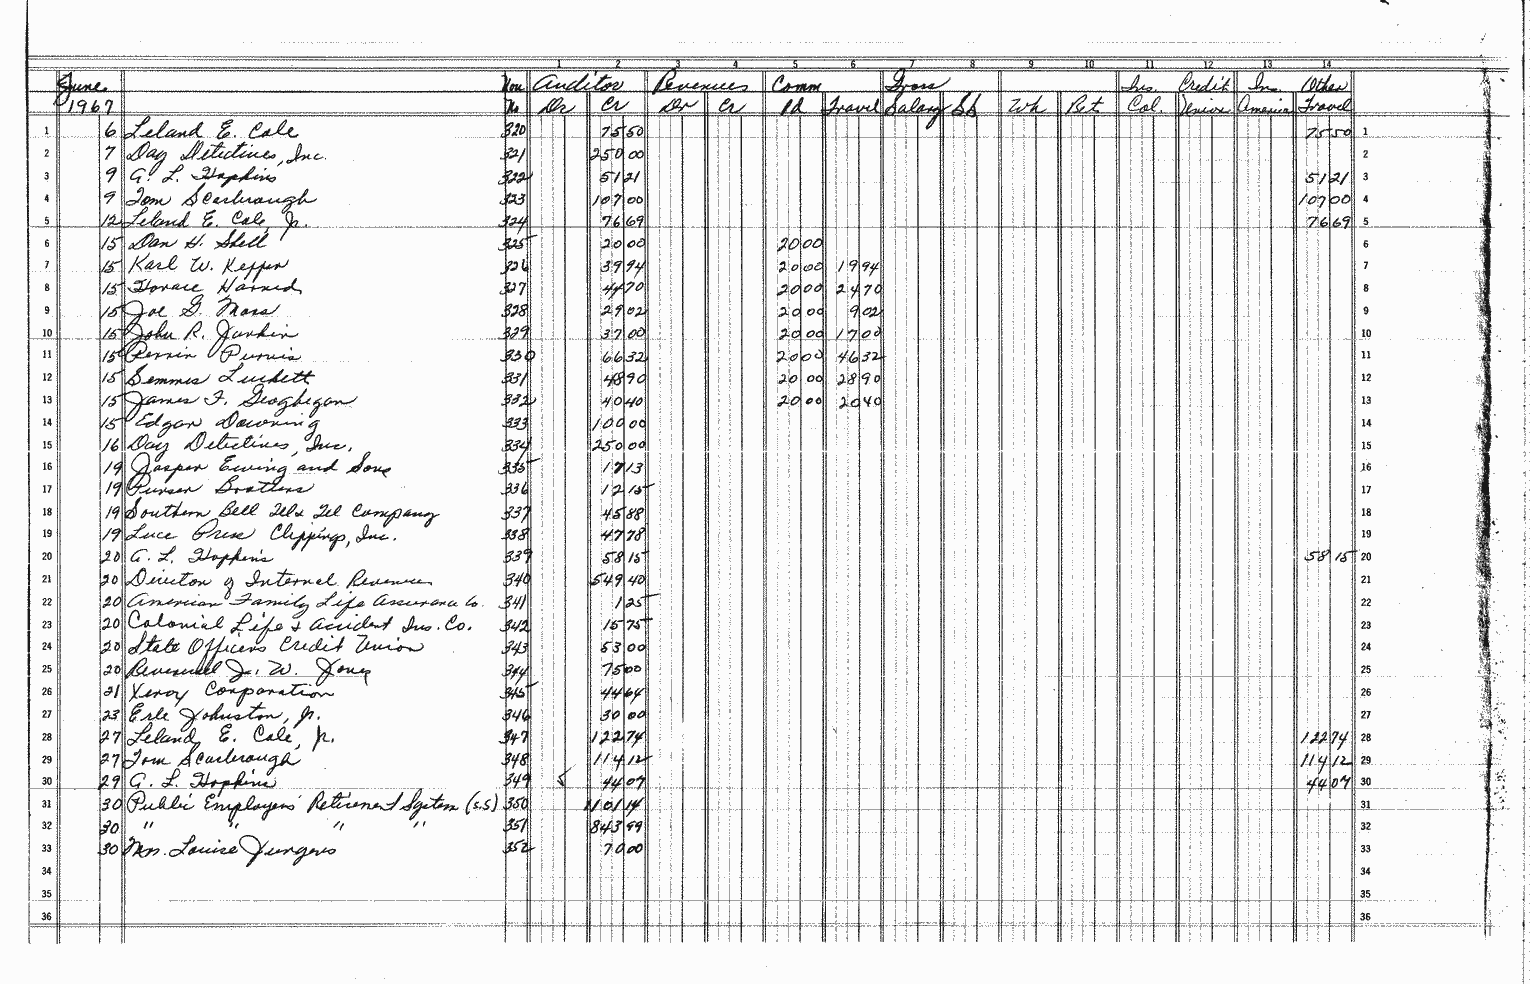 1 2 3 4 5 6 7 8 9 10 11 12 13 14
June Vou Auditor Revenues Comm Gross Ins. Credit Ins. Other
1967 No Dr Cr Dr Cr Pd Travel Salary SS Wh Ret Col. Union American Travel
1 6 Leland E. Cole 320 75 50 75 50 1
2 7 Day Detectives, Inc. 321 250 00 2
3 9 A. L. Hopkins 322 51 21 51 21 3
4 9 Tom Scarbrough 323 107 00 107 00 4
5 12 Leland E. Cole, Jr. 324 76 69 76 69 5
6 15 Dan H. Shell 325 20 00 20 00 6
7 15 Karl W. Kepper 326 39 94 20 00 19 94 7
8 15 Horace Harned 327 44 70 20 00 24 70 8
9 15 Joe G. Moss 328 29 02 20 00 9 02 9
10 15 John R. Junkin 329 37 00 20 00 17 00 10
11 15 Perrin Purvis 330 66 32 20 00 46 32 11
12 15 Semmes Luckett 331 48 90 20 00 28 90 12
13 15 James F. Geoghegan 332 40 40 20 00 20 40 13
14 15 Edgar Downing 333 100 00 14
15 16 Day Detectives, Inc. 334 250 00 15
16 19 Jasper Ewing and Sons 335 17 13 16
17 19 Purser Brothers 336 12 15 17
18 19 Southern Bell Tel & Tel Company 337 45 88 18
19 19 Luce Press Clippings, Inc. 338 47 78 19
20 20 A. L. Hopkins 339 58 15 58 15 20
21 20 Director of Internal Revenue 340 549 40 21
22 20 American Family Life Assurance Co. 341 1 25 22
23 20 Colonial Life & Accident Ins. Co. 342 15 75 23
24 20 State Officers Credit Union 343 53 00 24
25 20 Reverend J. W. Jones 344 75 00 25
26 21 Xerox Corporation 345 44 64 26
27 23 Erle Johnston, Jr. 346 30 00 27
28 27 Leland E. Cole, Jr. 347 122 74 122 74 28
29 27 Tom Scarbrough 348 114 12 114 12 29
30 29 A. L. Hopkins 349 44 07 44 07 30
31 30 Public Employees' Retirement System (S.S) 350 1101 14 31
32 30 " " " " 351 843 99 32
33 30 Mrs. Louise 352 70 00 33
34 34
35 35
36 36